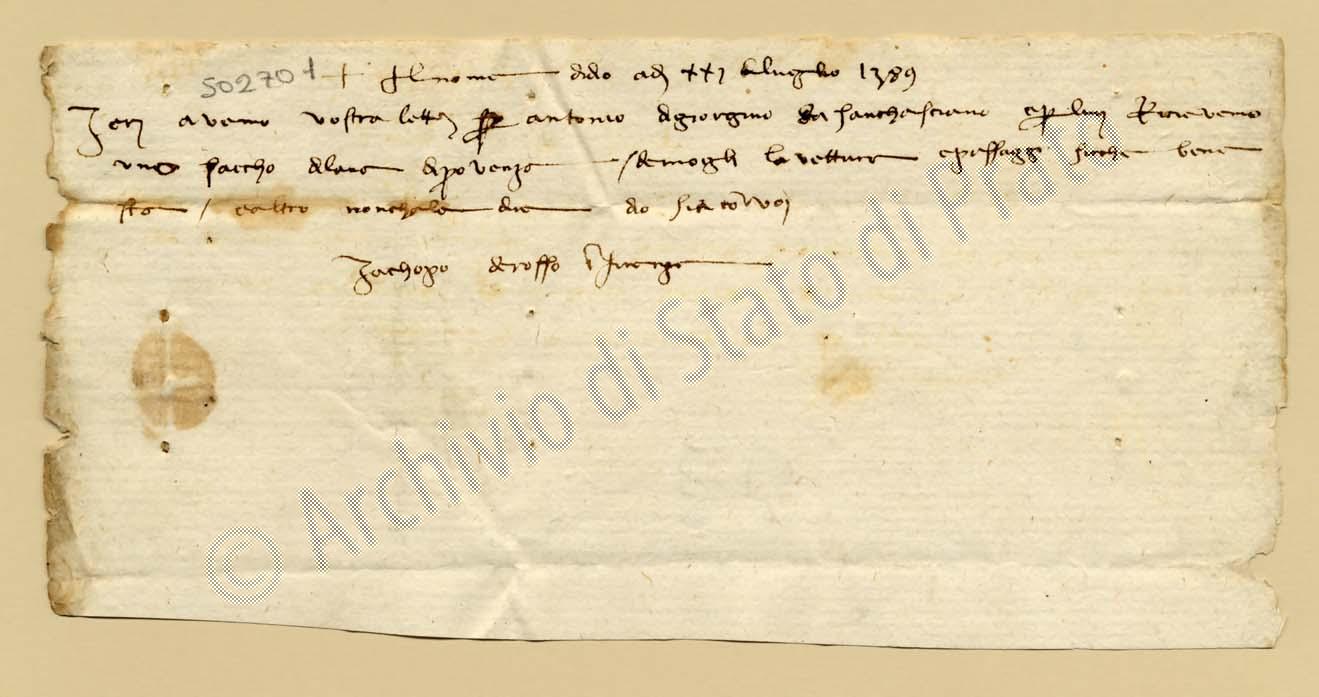 502701
+ Al nome di dio adj XXI di luglio 1389
Jerj avemo vostra lettera per antonio di giorgino da sanchasciano e per luj Ricievemo
uno saccho di lana di provenza / demogli la vettura e passaggi sicche bene
sta / e altro non chale dire dio sia con voj
Jachopo del rosso in firenze
© Archivio di Stato di Prato